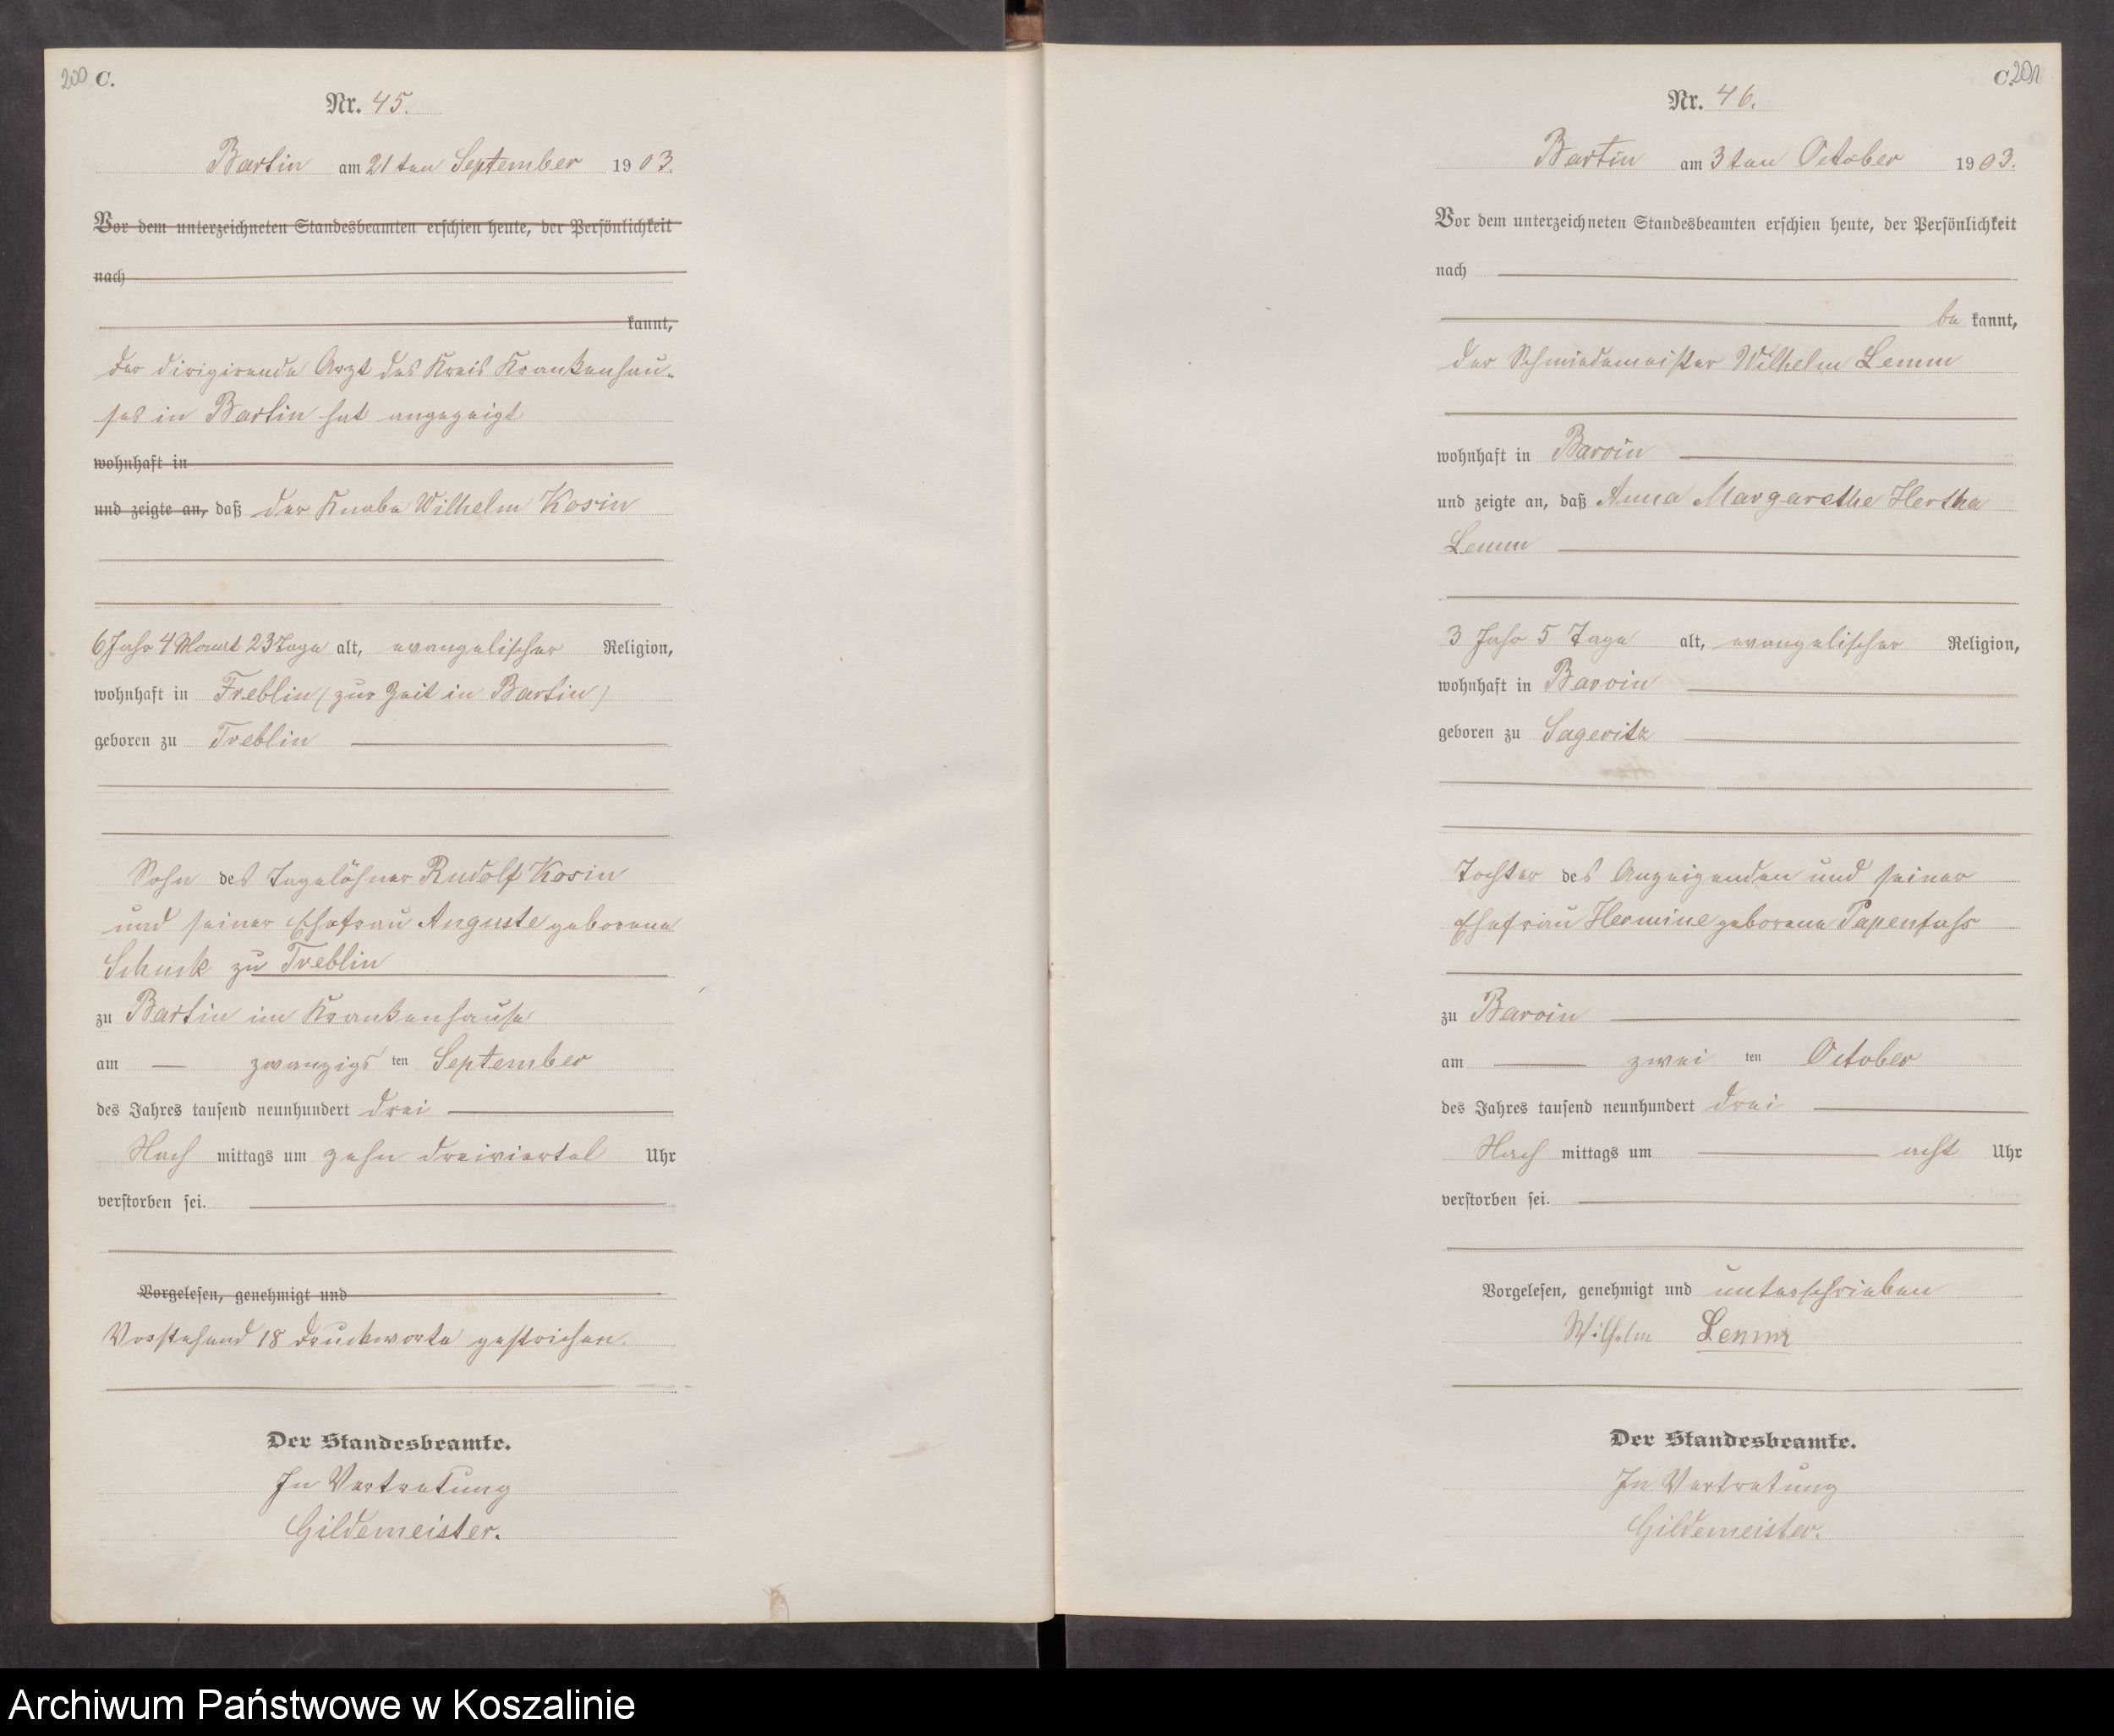 200 C.
Nr. 45.
Bartin am 21ten September 1903.
Vor dem unterzeichneten Standesbeamten erschien heute, der Persönlichkeit
nach
kannt,
der dirigirende Arzt des Kreis Krankenhau-
ses in Bartin hat angezeigt
wohnhaft in
und zeigte an, daß der Knabe Wilhelm Kosin
6 Jahr 4 Monat 23 Tage alt, evangelischer Religion,
wohnhaft in Treblin (zur Zeit in Bartin)
geboren zu Treblin
Sohn des Tagelöhner Rudolf Kosin
und seiner Ehefrau Auguste geborene
zu Treblin
zu Bartin im Krankenhause
am zwanzigs ten September
des Jahres tausend neunhundert drei
Nach mittags um zehn dreiviertel Uhr
verstorben sei.
Vorgelesen, genehmigt und
Vorstehend 18 Druckworte gestrichen.
Der Standesbeamte.
In Vertretung
Gildemeister.
C. 201
Nr. 46.
Bartin am 3ten October 1903.
Vor dem unterzeichneten Standesbeamten erschien heute, der Persönlichkeit
nach
be kannt,
der Schmiedemeister Wilhelm Lemm
wohnhaft in Barvin
und zeigte an, daß Anna Margarethe Hertha
Lemm
3 Jahr 5 Tage alt, evangelischer Religion,
wohnhaft in Barvin
geboren zu Sageritz
Tochter des Anzeigenden und seiner
Ehefrau Hermine geborene Papenfuhs
zu Barvin
am zwei ten October
des Jahres tausend neunhundert drei
Nach mittags um acht Uhr
verstorben sei.
Vorgelesen, genehmigt und unterschrieben
Wilhelm Lemm
Der Standesbeamte.
In Vertretung
Gildemeister.
Archiwum Państwowe w Koszalinie